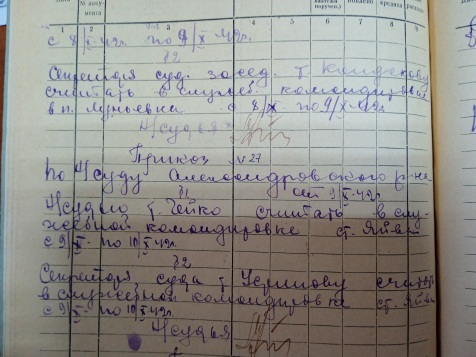 № доку-
мента
кредита
1 2 3 4 5 6 7 8 9
с 8/X-42г. по 9/X 42г.
§2
Секретаря суд. засед. т.
считать в служеб. командировке
в п. Луньевка с 8/X по 9/X 42г.
Н/судья
Приказ №27
по Н/суду Александровского р-на
§1 от 9/X-42г.
Н/судью т. Гейко считать в слу-
жебной командировке ст. Яйва
с 9/X по 10/X-42г.
§2
Секретаря суда т. считать
в служебной командировке ст. Яйва
с 9/X по 10/X-42г.
Н/судья